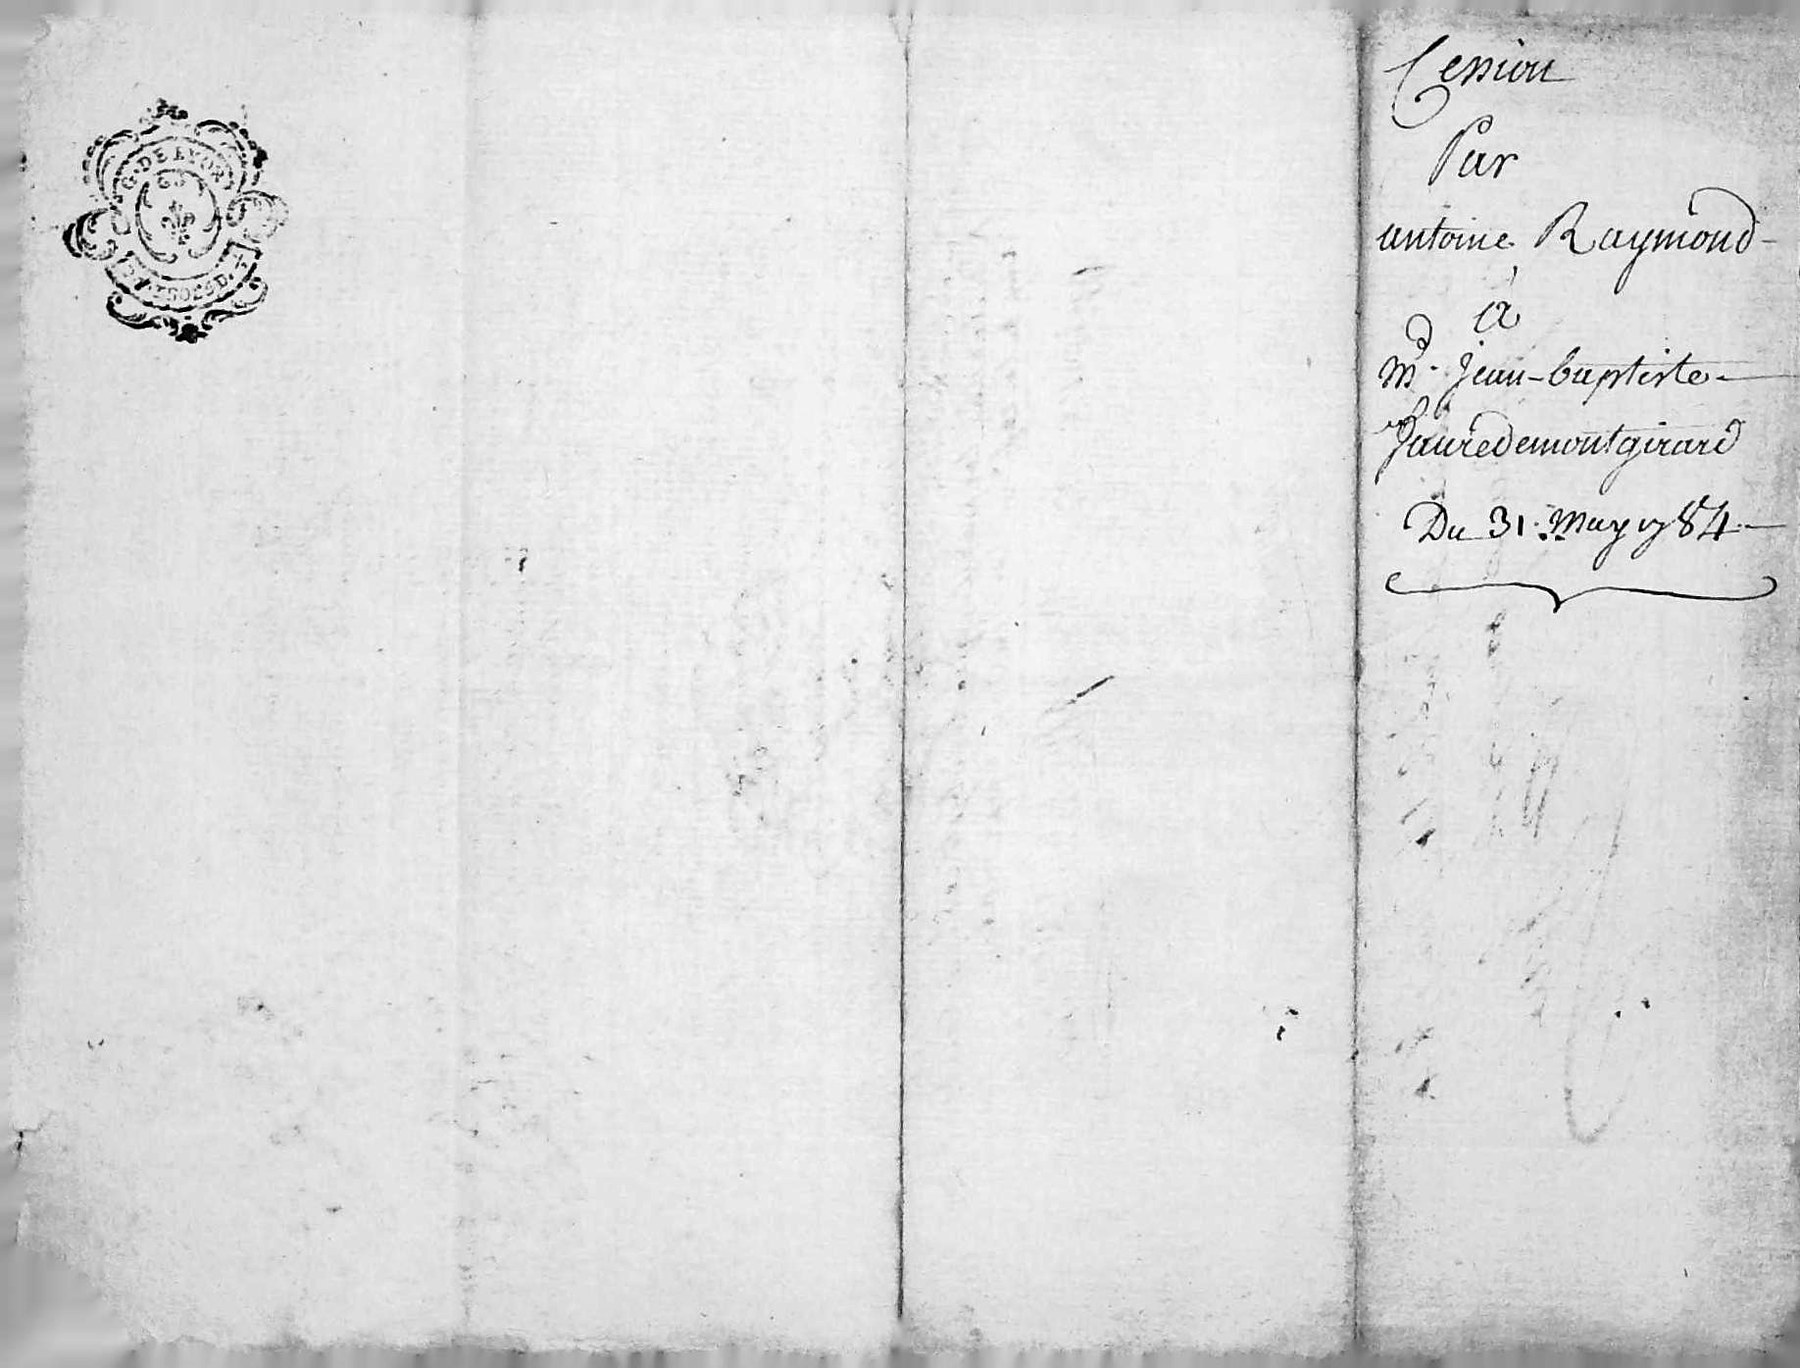 G. DE LYON
Cession
Par
antoine Raymond
à
mr. jean-baptiste
fauredemontgirard
Du 31. May 1784